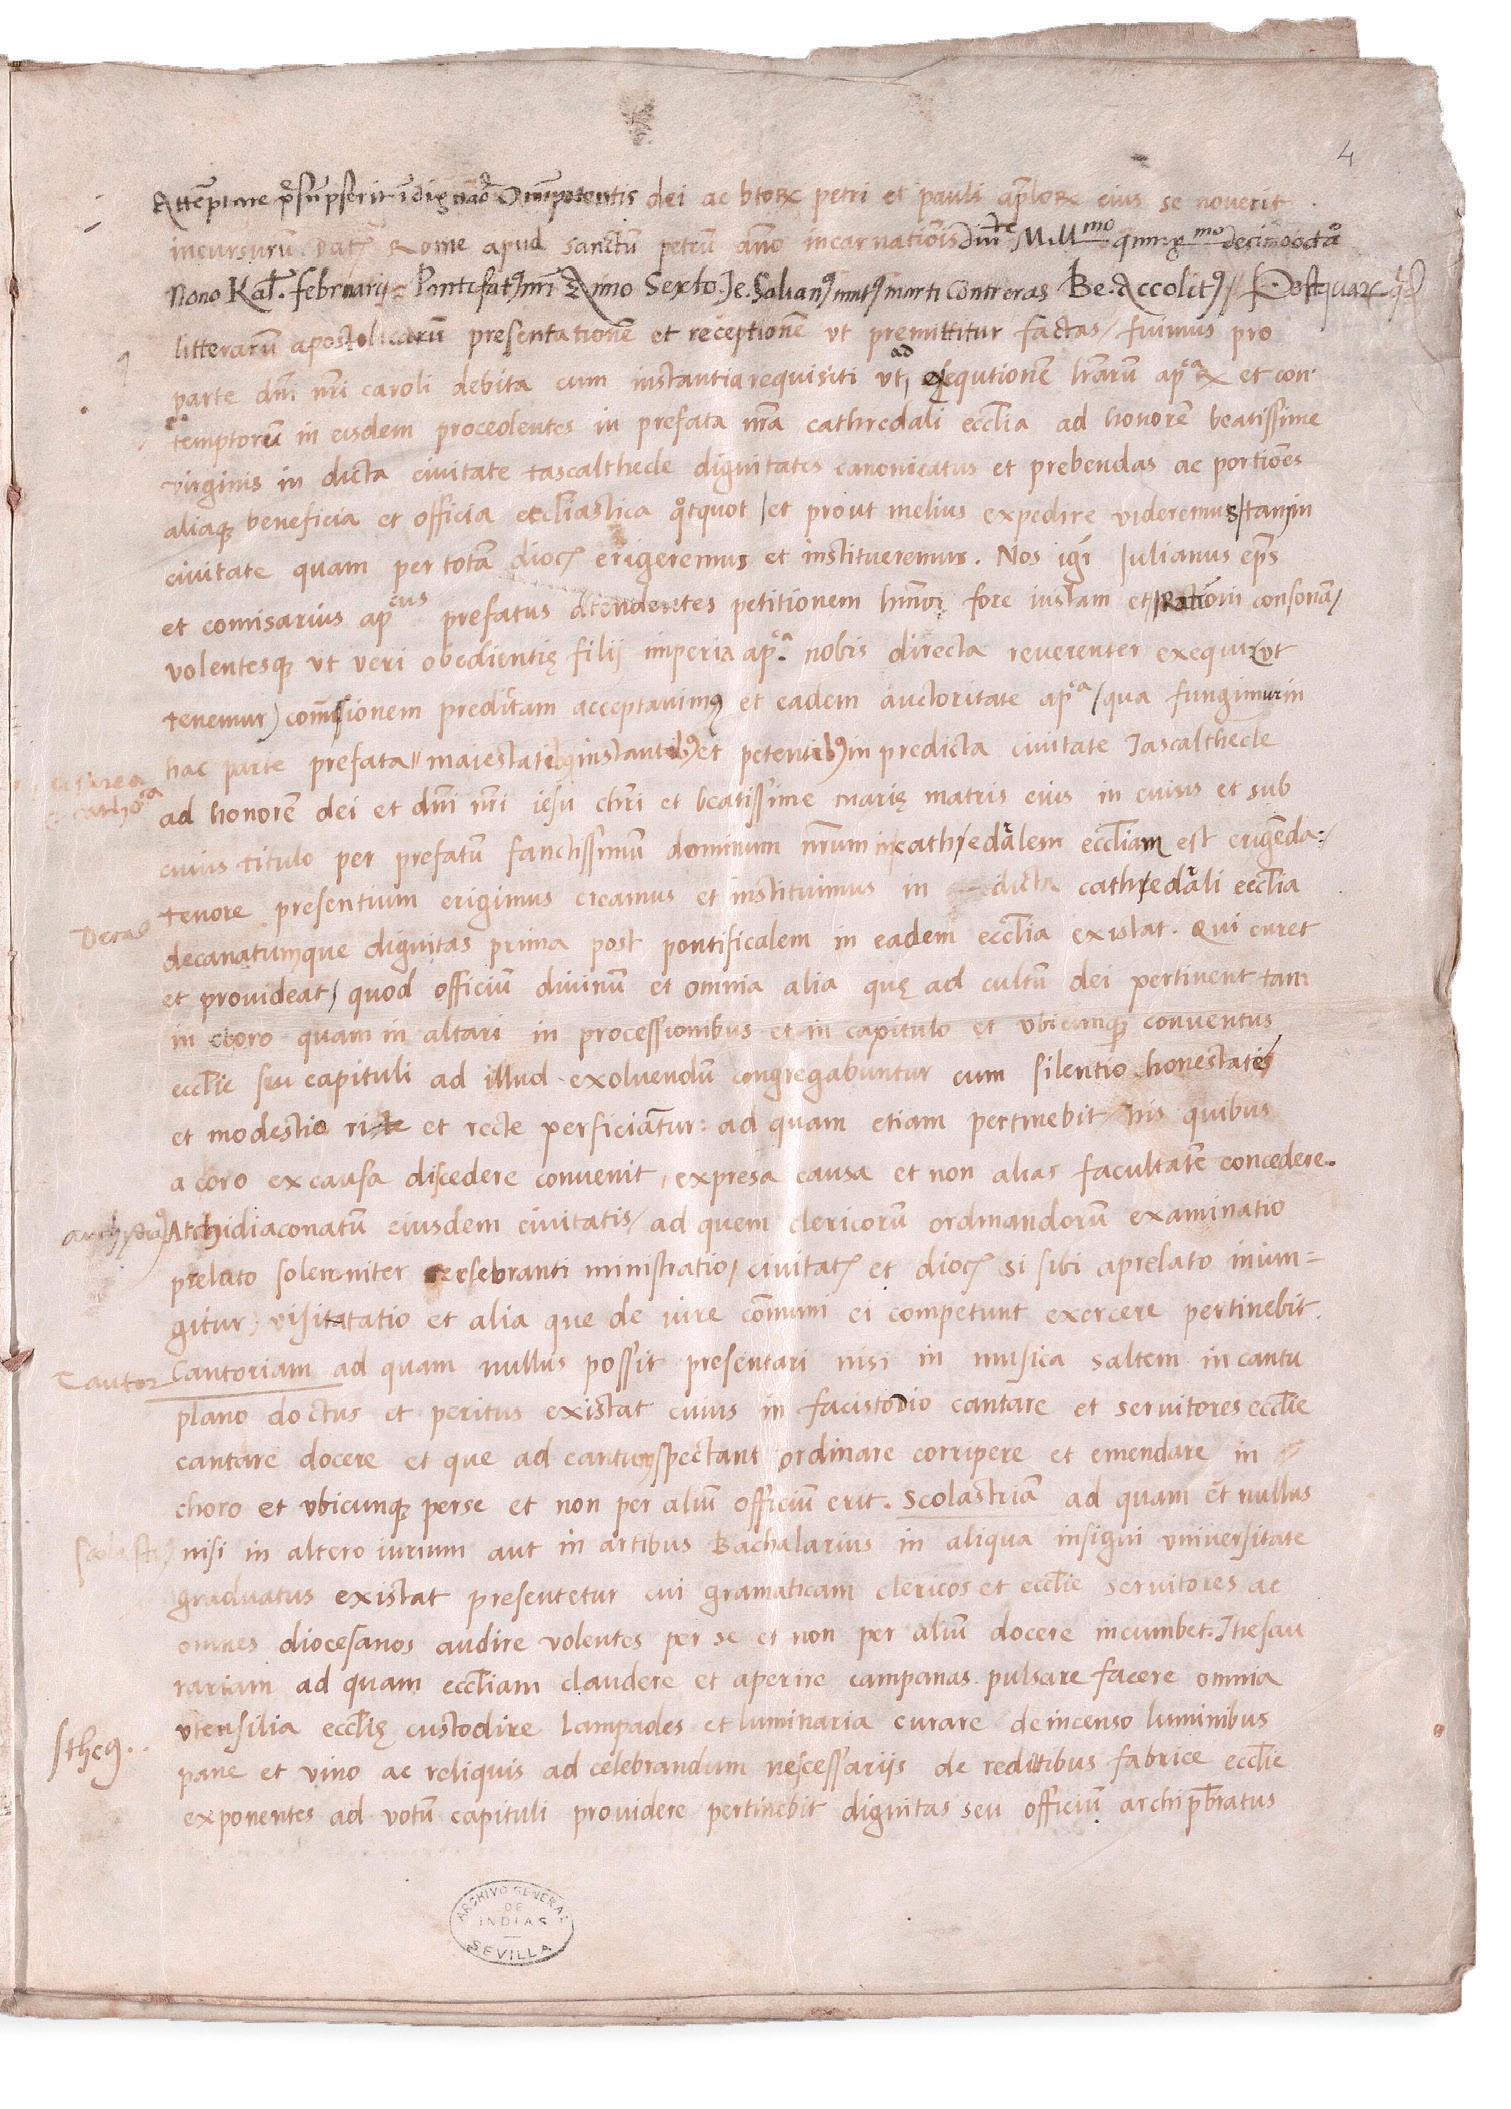 4
Attẽptare p̃sũpserit ĩdignaõẽ Omnipotentis dei ac btorꝝ petri et pauli aplorꝝ eius se noverit
incursurũ. Dat᷒ Rome apud sanctũ petrũ anno incarnationis dnice Mill^mo quing^mo decimooctavo
Nono Kal. februarij Pontificatꝰ nr̃i Anno Sexto. Je. Salianꝰ marti Contreras Be. Accolitꝰ // Postquarꝝ q̃
litterarũ apostolicarũ presentationẽ et receptionẽ vt premittitur factas / fuimus pro
parte dñi nr̃i caroli debita cum instantia requisiti vt ad exequtionẽ lr̃arũ ap^carꝝ et con
temptorũ in eisdem procedentes in prefata nr̃a cathredali ecclia ad honorẽ beatissime
virginis in dicta civitate tascalthecle dignitates canonicatus et prebendas ac portiões
aliaqꝫ beneficia et officia eccliastica qᵒtquot / et prout melius expedire videremus / tam in
civitate quam per totã dioc᷒ erigeremus et institueremus. Nos igr̃ Julianus ep̃s
et comisarius ap^cus prefatus atendentes petitionem hmõi fore iustam et rationi consonã /
volentesqꝫ vt veri obedientię filij imperia ap^ca nobis directa reverenter exequi vt
tenemur) comĩsionem predictam acceptavimꝰ et eadem auctoritate ap^ca / qua fungimur in
hac parte prefata // maiestati instantibꝰ et petentibꝰ in predicta civitate Tascalthecle
cesarea
et catho^ca
ad honorẽ dei et dñi nr̃i iesu chr̃i et beatissime marię matris eius in cuius et sub
cuius titulo per prefatũ sanctissimũ dominum nr̃um in cathredalem eccliam est erigẽda:/
tenore presentium erigimus creamus et instituimus in dicta cathredali ecclia
Decas
decanatumque dignitas prima post pontificalem in eadem ecclia existat. Qui curet
et provideat / quod officiũ divinũ et omnia alia quę ad cultũ dei pertinent tam
in choro quam in altari in processionibus et in capitulo et vbicunqꝫ conventus
ecclie seu capituli ad illud exolvendũ congregabuntur cum silentio honestate
et modestia rite et recte perficiãtur: ad quam etiam pertinebit his quibus
a coro ex causa discedere convenit, expresa causa et non alias facultatẽ concedere.
archidiaꝰ
Archidiaconatũ eiusdem civitatis / ad quem clericorũ ordinandorũ examinatio
prelato solemniter celebranti ministratio / civitat᷒ et dioc᷒ si sibi aprelato inium=
gitur, visitatatio et alia que de iure comũni ei competunt exercere pertinebit.
Cantor
Cantoriam ad quam nullus possit presentari nisi in musica saltem in cantu
plano doctus et peritus existat cuius in facistorio cantare et servitores ecclie
cantare docere et que ad cantum spectant ordinare corripere et emendare in
choro et vbicunqꝫ perse et non per aliũ officiũ erit. Scolastriã ad quam et̃ nullus
Scolastri
nisi in altero iurium aut in artibus Bachalarius in aliqua insigni vniversitate
graduatus existat presentetur cui gramaticam clericos et ecclie servitores ac
omnes diocesanos audire volentes per se et non per aliũ docere incumbet. Thesau
rariam ad quam eccliam claudere et aperire campanas pulsare facere omnia
vtensilia ecclię custodire lampades et luminaria curare de incenso luminibus
sthes..
pane et vino ac reliquis ad celebrandum nescessarijs de redittibus fabrice ecclie
exponentes ad votũ capituli providere pertinebit dignitas seu officiũ archipr̃bratus
ARCHIVO GENERAL
DE
INDIAS
SEVILLA